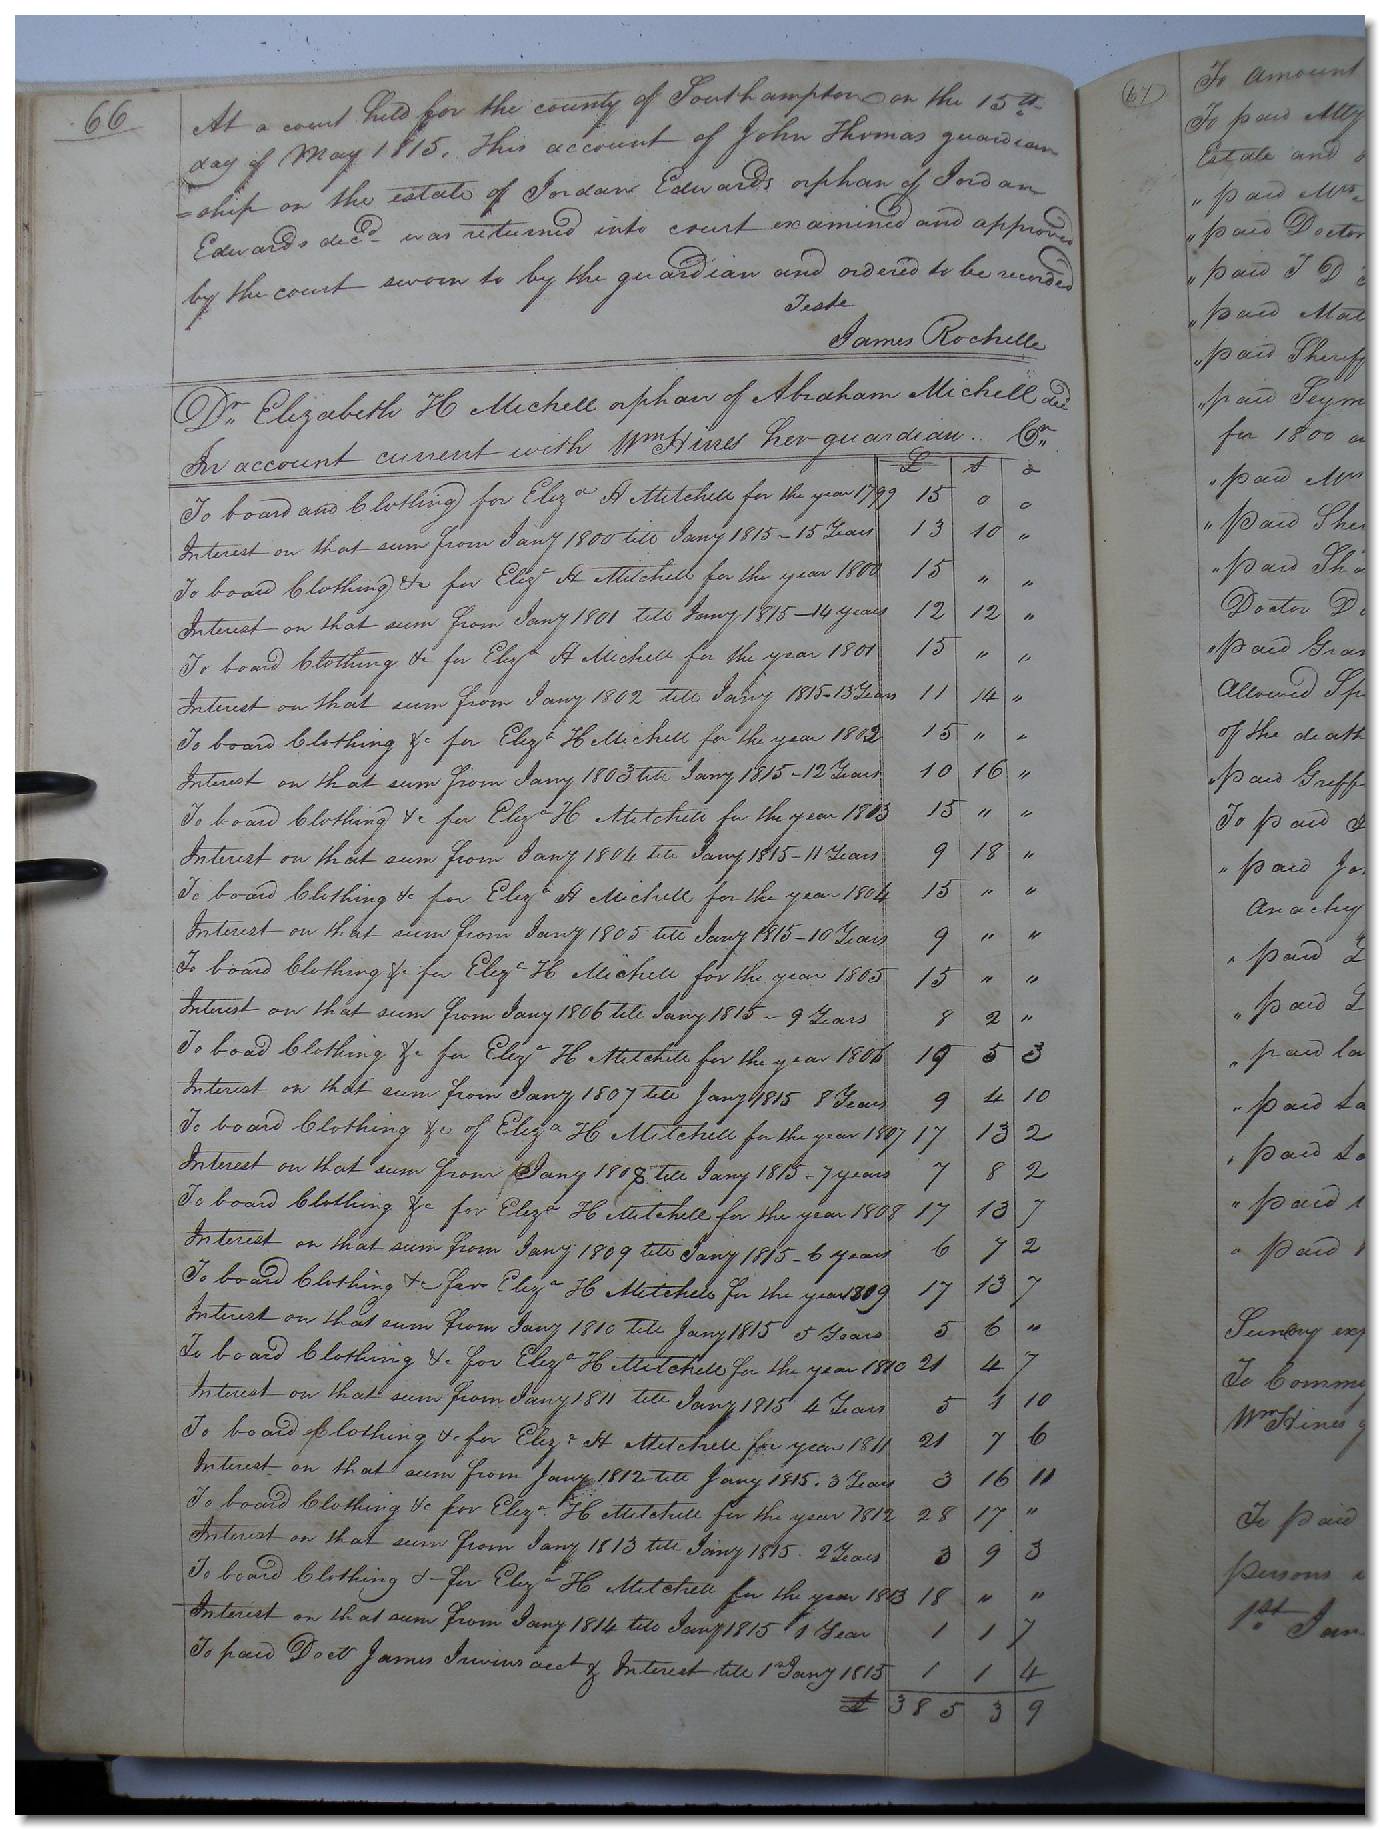 66
At a court held for the county of Southampton on the 15th
day of May 1815. This account of John Thomas guardian
=ship on the estate of Jordan Edwards orphan of Jordan
Edwards decd was returned into court examined and approved
by the court sworn to by the guardian and ordered to be recorded
Teste
James Rochelle
Dr. Elizabeth H Michell orphan of Abraham Michell decd
In account current with Wm Hines her guardian .. Cr.
£ s d
To board and Clothing for Eliza H Mitchell for the year 1799 15 0 0
Interest on that sum from Jany 1800 till Jany 1815 - 15 Years 13 10 "
To board Clothing &c for Eliza H Mitchell for the year 1800 15 " "
Interest on that sum from Jany 1801 till Jany 1815 - 14 years 12 12 "
To board Clothing &c for Eliza H Michell for the year 1801 15 " "
Interest on that sum from Jany 1802 till Jany 1815 - 13 Years 11 14 "
To board Clothing &c for Eliza H Michell for the year 1802 15 " "
Interest on that sum from Jany 1803 till Jany 1815 - 12 Years 10 16 "
To board Clothing &c for Eliza H Mitchell for the year 1803 15 " "
Interest on that sum from Jany 1804 till Jany 1815 - 11 Years 9 18 "
To board Clothing &c for Eliza H Michell for the year 1804 15 " "
Interest on that sum from Jany 1805 till Jany 1815 - 10 Years 9 " "
To board Clothing &c for Eliza H Michell for the year 1805 15 " "
Interest on that sum from Jany 1806 till Jany 1815 - 9 Years 8 2 "
To boad Clothing &c for Eliza H Mitchell for the year 1806 19 5 3
Interest on that sum from Jany 1807 till Jany 1815 8 Years 9 4 10
To board Clothing &c of Eliza H Mitchell for the year 1807 17 13 2
Interest on that sum from Jany 1808 till Jany 1815 - 7 years 7 8 2
To board Clothing &c for Eliza H Mitchell for the year 1808 17 13 7
Interest on that sum from Jany 1809 till Jany 1815 - 6 years 6 7 2
To board Clothing &c for Eliza H Mitchell for the year 1809 17 13 7
Interest on that sum from Jany 1810 till Jany 1815 5 Years 5 6 "
To board Clothing &c for Eliza H Mitchell for the year 1810 21 4 7
Interest on that sum from Jany 1811 till Jany 1815 4 Years 5 1 10
To board Clothing &c for Eliza H Mitchell for year 1811 21 7 6
Interest on that sum from Jany 1812 till Jany 1815 . 3 Years 3 16 11
To board Clothing &c for Eliza H Mitchell for the year 1812 28 17 "
Interest on that sum from Jany 1813 till Jany 1815 . 2 Years 3 9 3
To board Clothing &c for Eliza H Mitchell for the year 1813 18 " "
Interest on that sum from Jany 1814 till Jany 1815 1 Year 1 1 7
To paid Doct James acct & Interest till 1st Jany 1815 1 1 4
£ 385 3 9
67
To amount
To paid
Estate and
" paid Mrs
" paid Doctor
" paid J D
" paid Mat
" paid Sheriff
" paid Seym
for 1800
" paid Mrs
" paid Sher
" paid
Doctor
" paid Gran
Allowed
of the death
" paid Griff
To paid
" paid Jo
" paid
" paid
" paid la
" paid
" paid
" paid
" paid
Sundry exp
To Comm
Wm Hines
To paid
persons
1st Jan